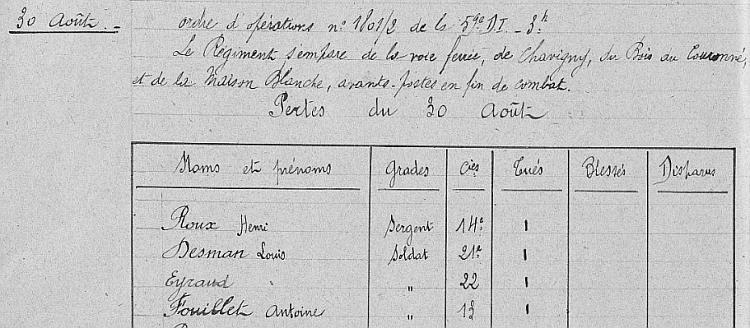 30 Août._ ordre d'opérations n° 1801/2 de la 59e DI _ 3h
Le Régiment s'empare de la voie ferrée, de Chavigny, du Bois du Couronné,
et de la Maison Blanche, avants-postes en fin de combat.
Pertes du 30 Août
Noms et prénoms Grades Cies Tués Blessés Disparus
Roux Henri Sergent 14e 1
Desman Louis Soldat 21e 1
Eyraud " 22 1
Fouillet Antoine " 13 1